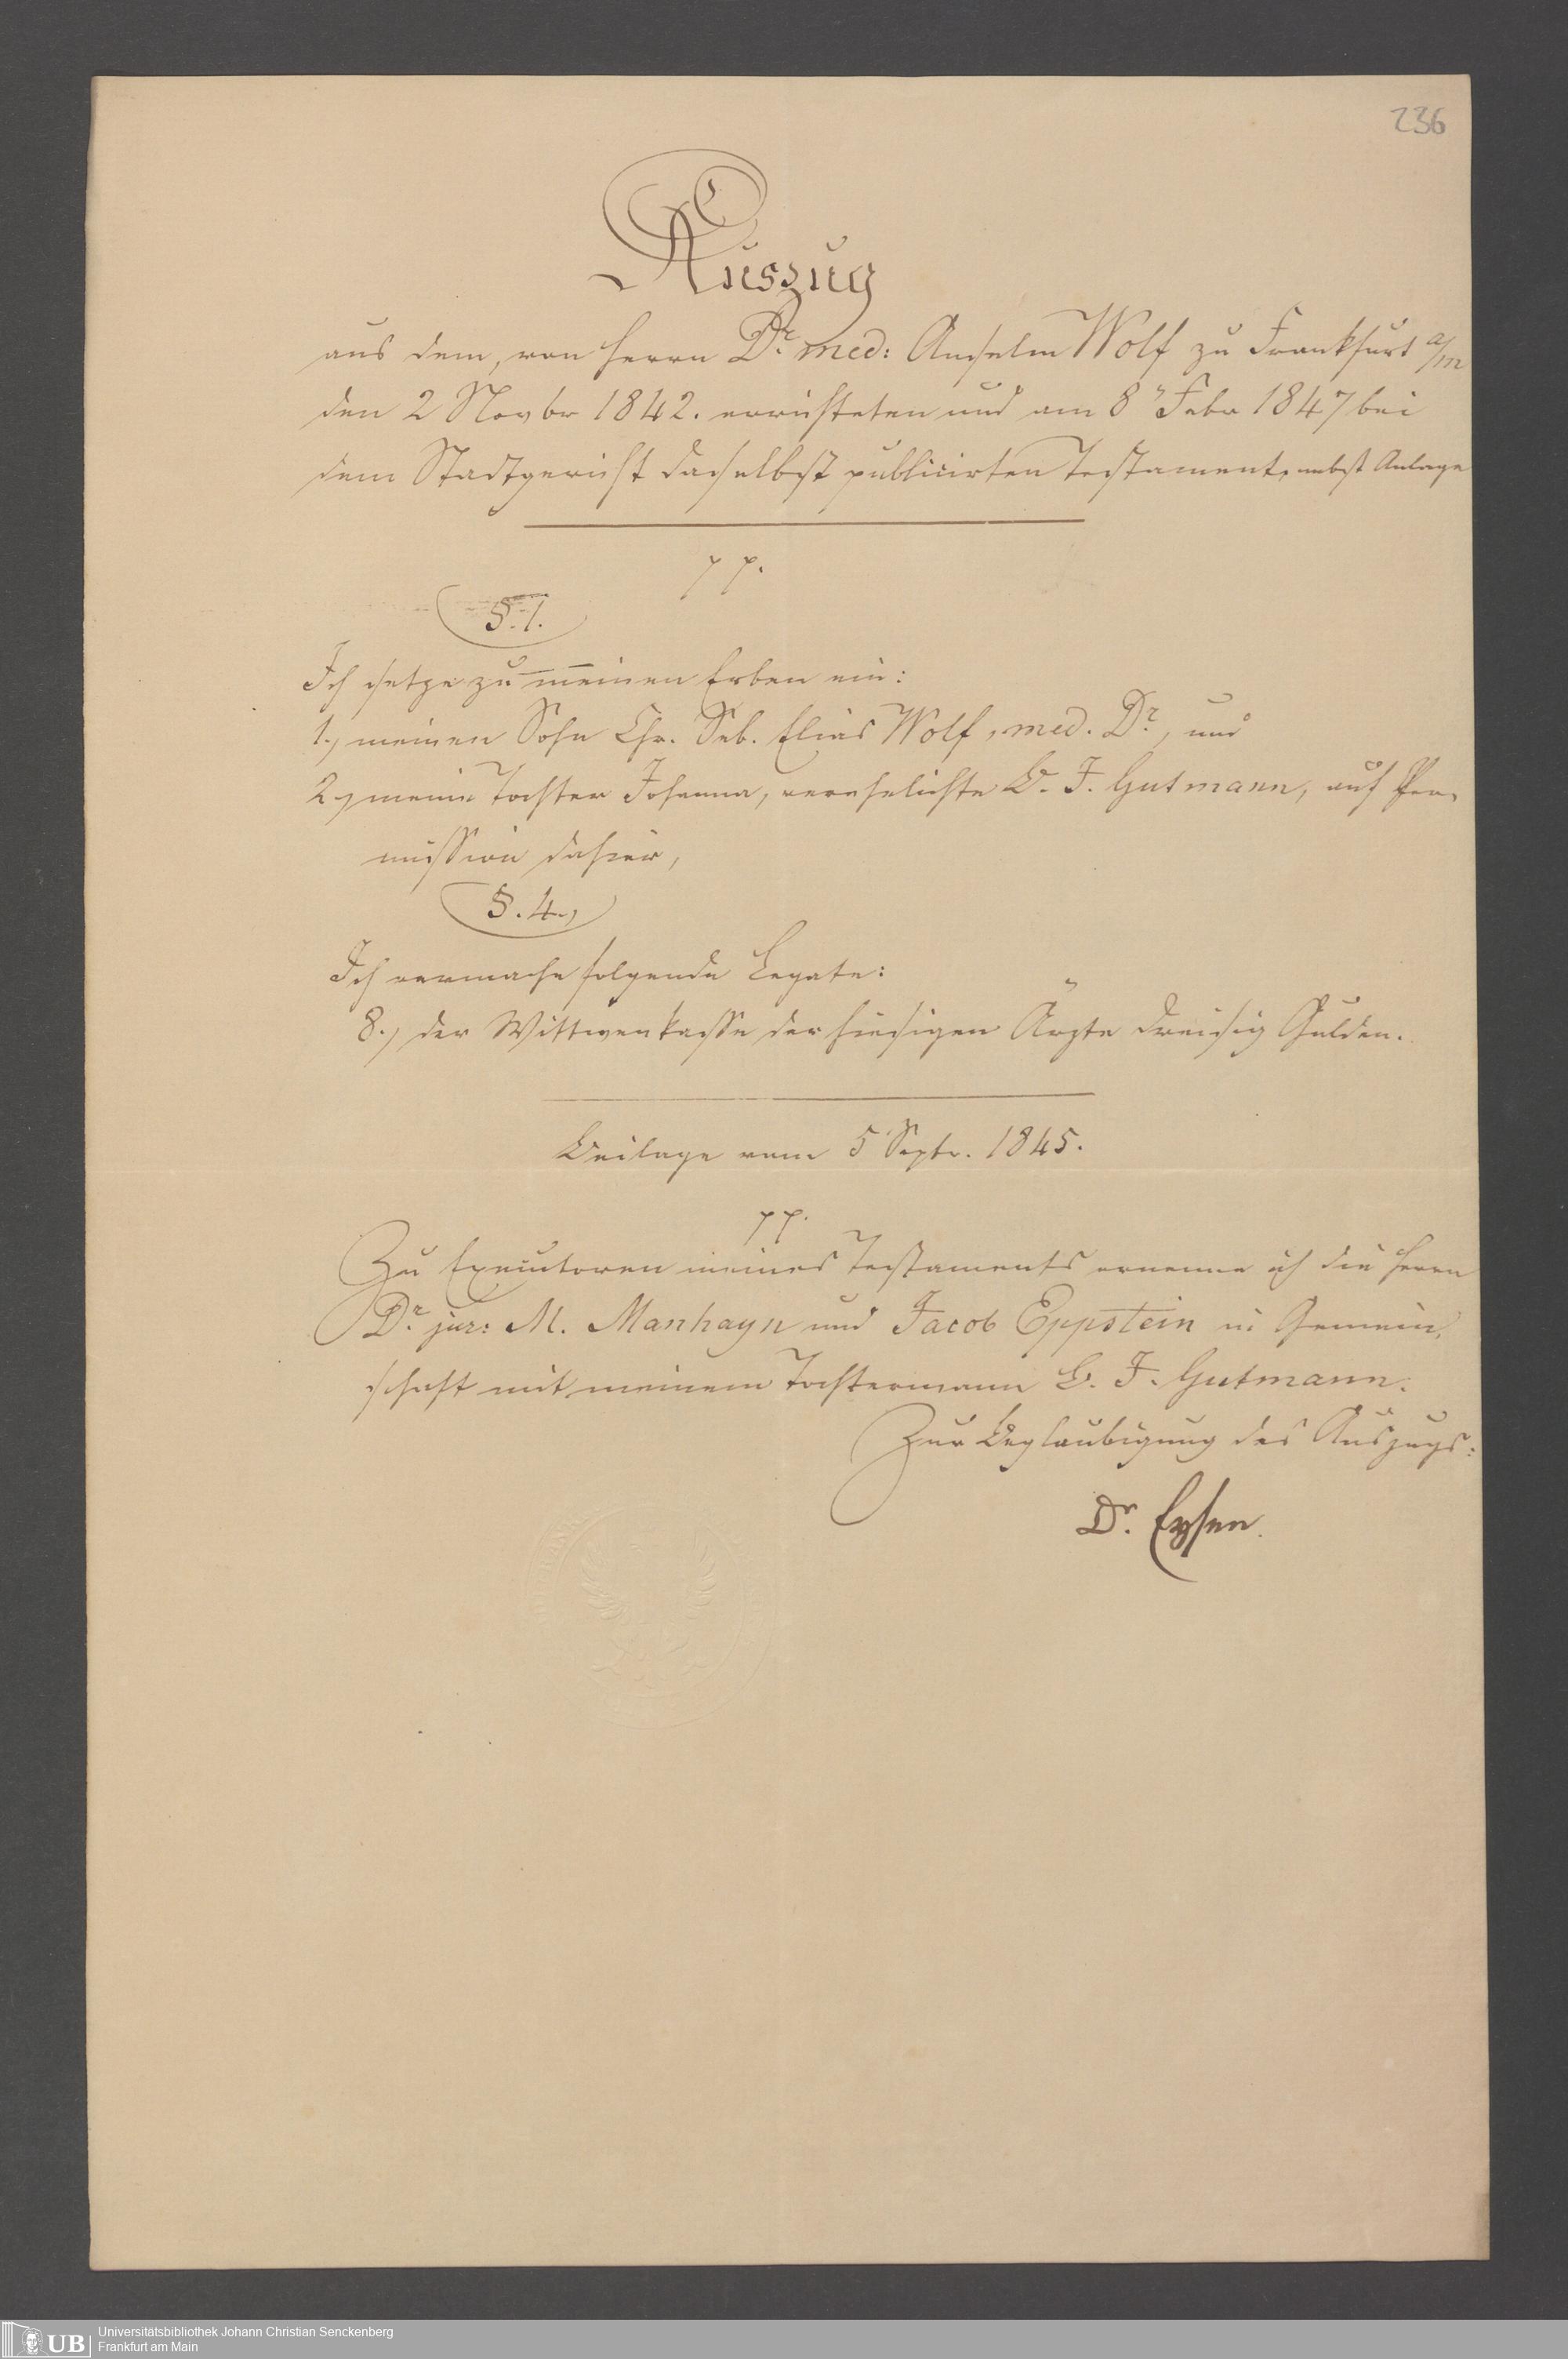 236
Auszug
aus dem, von Herrn Dr. med: Anselm Wolf zu Frankfurt a/m
den 2 Novbr 1842. errichteten und am 8" Febr 1847 bei
dem Stadtgericht daselbst publicirten Testament, nebst Anlage
pp.
§. 1.
Ich setze zu meinen Erben ein:
1., meinen Sohn Chr. Seb. Elias Wolf, med. Dr., und
2., meine Tochter Johanna, verehelichte B. J. Gutmann, auf Per-
mission dahier,
§. 4.,
Ich vermache folgende Legate:
8., der Wittwenkasse der hiesigen Ärzte dreisig Gulden.
Beilage vom 5 Septr. 1845.
pp.
Zu Executoren meines Testaments ernenne ich die Herrn
Dr. jur: M. Manhayn und Jacob Eppstein in Gemein-
schaft mit meinem Tochtermann B. J. Gutmann.
Zur Beglaubigung des Auszugs:
Dr. Eysen.
UB Universitätsbibliothek Johann Christian Senckenberg
Frankfurt am Main